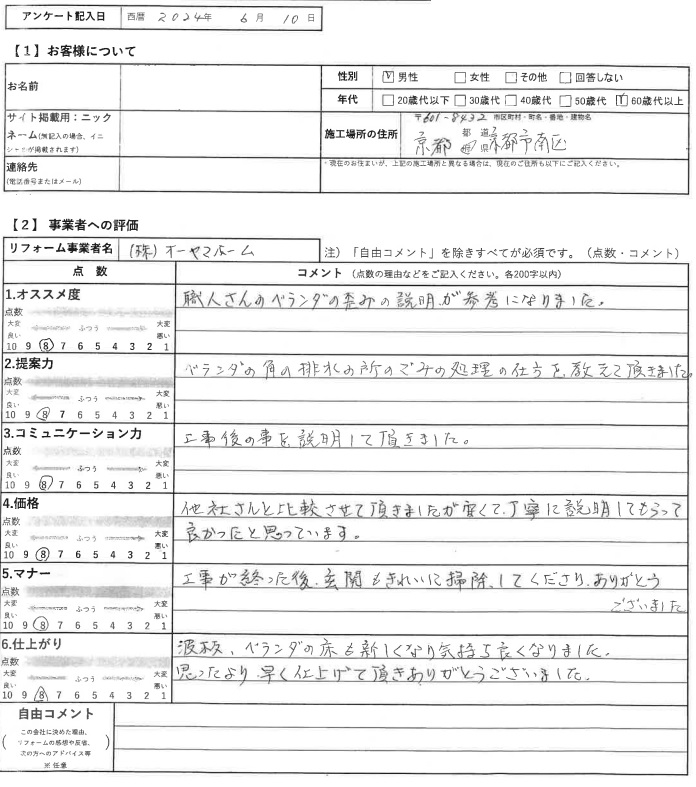 アンケート記入日 西暦 2024年 6月 10日
【1】お客様について
お名前
性別 ☑男性 □女性 □その他 □回答しない
年代 □20歳代以下 □30歳代 □40歳代 □50歳代 ☑60歳代以上
サイト掲載用：ニックネーム(無記入の場合、イニシャルが掲載されます)
施工場所の住所
〒601-8432 市区町村・町名・番地・建物名
京都 都道府県 京都市南区
連絡先
(電話番号またはメール)
・現在のお住まいが、上記の施工場所と異なる場合は、現在のご住所も以下にご記入ください。
【2】事業者への評価
リフォーム事業者名 (株)オーヤマホーム
注）「自由コメント」を除きすべてが必須です。（点数・コメント）
点数 コメント（点数の理由などをご記入ください。各200字以内）
1.オススメ度
職人さんのベランダの歪みの説明が参考になりました。
点数
大変良い ふつう 大変悪い
10 9 8 7 6 5 4 3 2 1
2.提案力
ベランダの角の排水の所のごみの処理の仕方を教えて頂きました。
点数
大変良い ふつう 大変悪い
10 9 8 7 6 5 4 3 2 1
3.コミュニケーション力
工事後の事を説明して頂きました。
点数
大変良い ふつう 大変悪い
10 9 8 7 6 5 4 3 2 1
4.価格
他社さんと比較させて頂きましたが安くて、丁寧に説明してもらって
良かったと思っています。
点数
大変良い ふつう 大変悪い
10 9 8 7 6 5 4 3 2 1
5.マナー
工事が終った後、玄関もきれいに掃除してくださり、ありがとう
ございました
点数
大変良い ふつう 大変悪い
10 9 8 7 6 5 4 3 2 1
6.仕上がり
波板、ベランダの床も新しくなり気持ち良くなりました。
思ったより早く仕上げて頂きありがとうございました。
点数
大変良い ふつう 大変悪い
10 9 8 7 6 5 4 3 2 1
自由コメント
この会社に決めた理由、
リフォームの感想や反省、
次の方へのアドバイス等
※任意